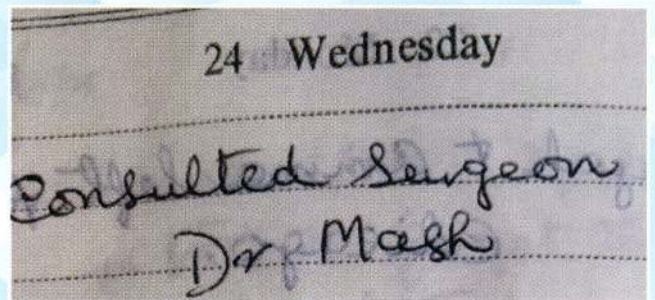 24 Wednesday
Consulted Surgeon
Dr Mash